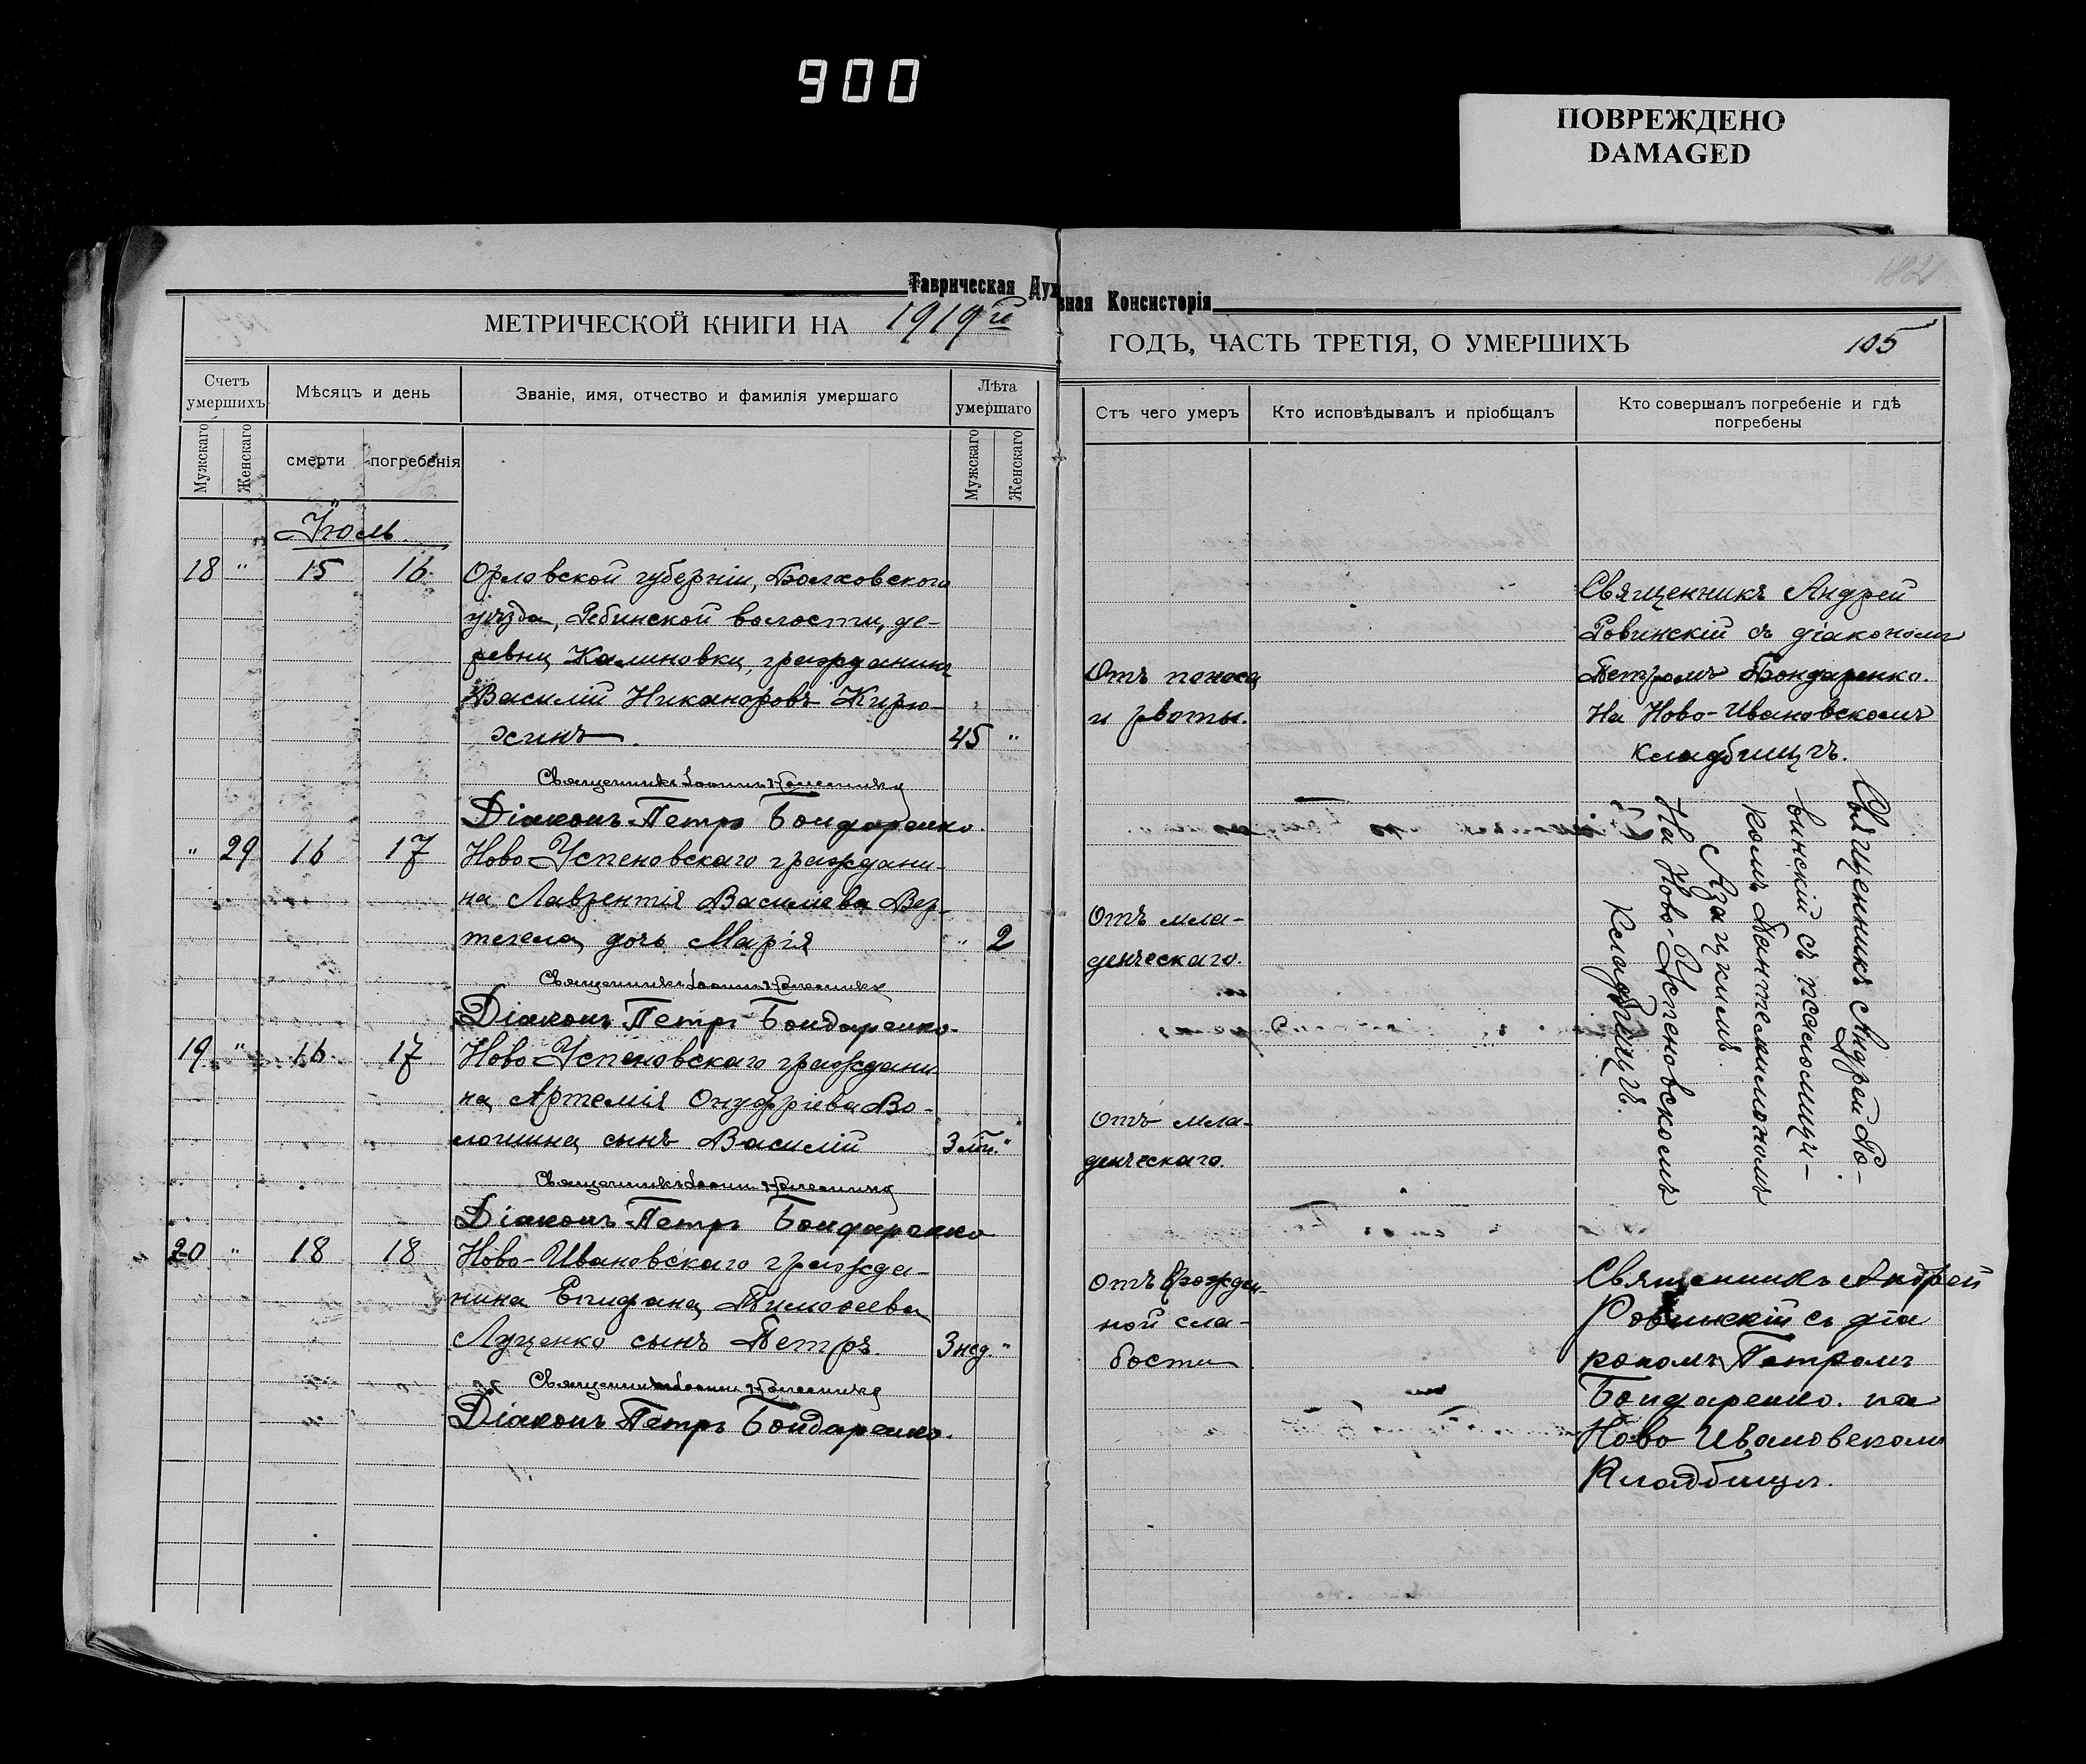 900
ПОВРЕЖДЕНО
DAMAGED
Таврическая Духовная Консисторія
МЕТРИЧЕСКОЙ КНИГИ НА 1919й
ГОДЪ, ЧАСТЬ ТРЕТІЯ, О УМЕРШИХЪ
105
Счетъ умершихъ
Мужскаго
Женскаго
Мѣсяцъ и день
смерти
погребенія
Званіе, имя, отчество и фамилія умершаго
Лѣта умершаго
Мужскаго
Женскаго
Отъ чего умеръ
Кто исповѣдывалъ и пріобщалъ
Кто совершалъ погребеніе и гдѣ
погребены
Іюль.
18 " 15 16
Орловской губерніи, Болховского
уѣзда, Ребинской волости, де-
ревни Калиновки, гражданинъ
Василій Никаноровъ Кирю-
хинъ. 45 "
Отъ поноса
и рвоты.
Священникъ Андрей
Ровинскій съ діакономъ
Петромъ Бондаренко.
На Ново-Ивановскомъ
кладбищѣ.
Священникъ Іоаннъ
Діаконъ Петръ Бондаренко.
" 29 16 17
Ново-Успеновскаго граждани-
на Лаврентія Васильева Вер-
тегела дочь Марія " 2
Отъ мла-
денческаго.
Священникъ Андрей Ро-
винскій съ псаломщи-
комъ Пантелеимономъ
Азацкимъ.
На Ново-Успеновскомъ
Кладбищѣ.
Священникъ Іоаннъ
Діаконъ Петръ Бондаренко.
19 " 16 17
Ново-Успеновскаго граждани
на Артемія Онуфріева Во-
лошина сынъ Василій 3 м. "
Отъ мла-
денческаго.
Священникъ Іоаннъ
Діаконъ Петръ Бондаренко
20 " 18 18
Ново-Ивановскаго гражда-
нина Епифана Тимофеева
Луценко сынъ Петръ. 3 нед. "
Отъ врожден-
ной сла-
бости
Священникъ Андрей
Ровинскій съ діа
кономъ Петромъ
Бондаренко. на
Ново Ивановском
Кладбищѣ.
Священникъ Іоаннъ
Діаконъ Петръ Бондаренко.